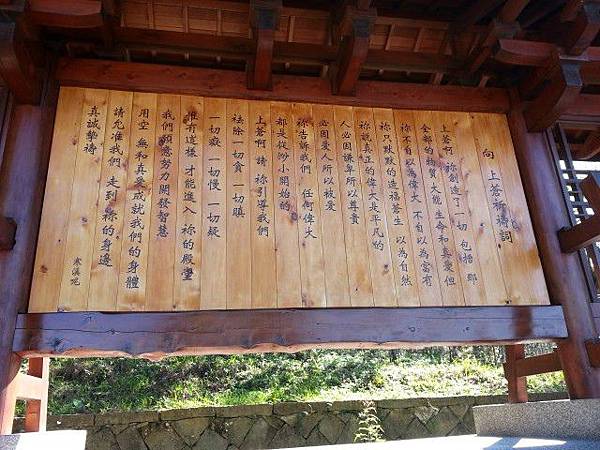 向 上蒼祈禱詞
上蒼呵 祢創造了一切 包括 那
全部的物質 大能 生命和真愛 但
祢不自以為偉大 不自以為富有
祢只默默的造福蒼生 以為自然
祢說真正的偉大是平凡的
人必因謙卑所以尊貴
必因愛人所以被愛
祢告訴我們 任何偉大
都是從渺小開始的
上蒼呵 請 祢引導我們
祛除一切貪 一切瞋
一切癡 一切慢 一切疑
唯有這樣 才能進入 祢的殿堂
我們願意努力 開發智慧
用空 無和真愛 成就我們的身體
請允准我們 走到 祢的身邊
真誠摯禱
寒溪呢